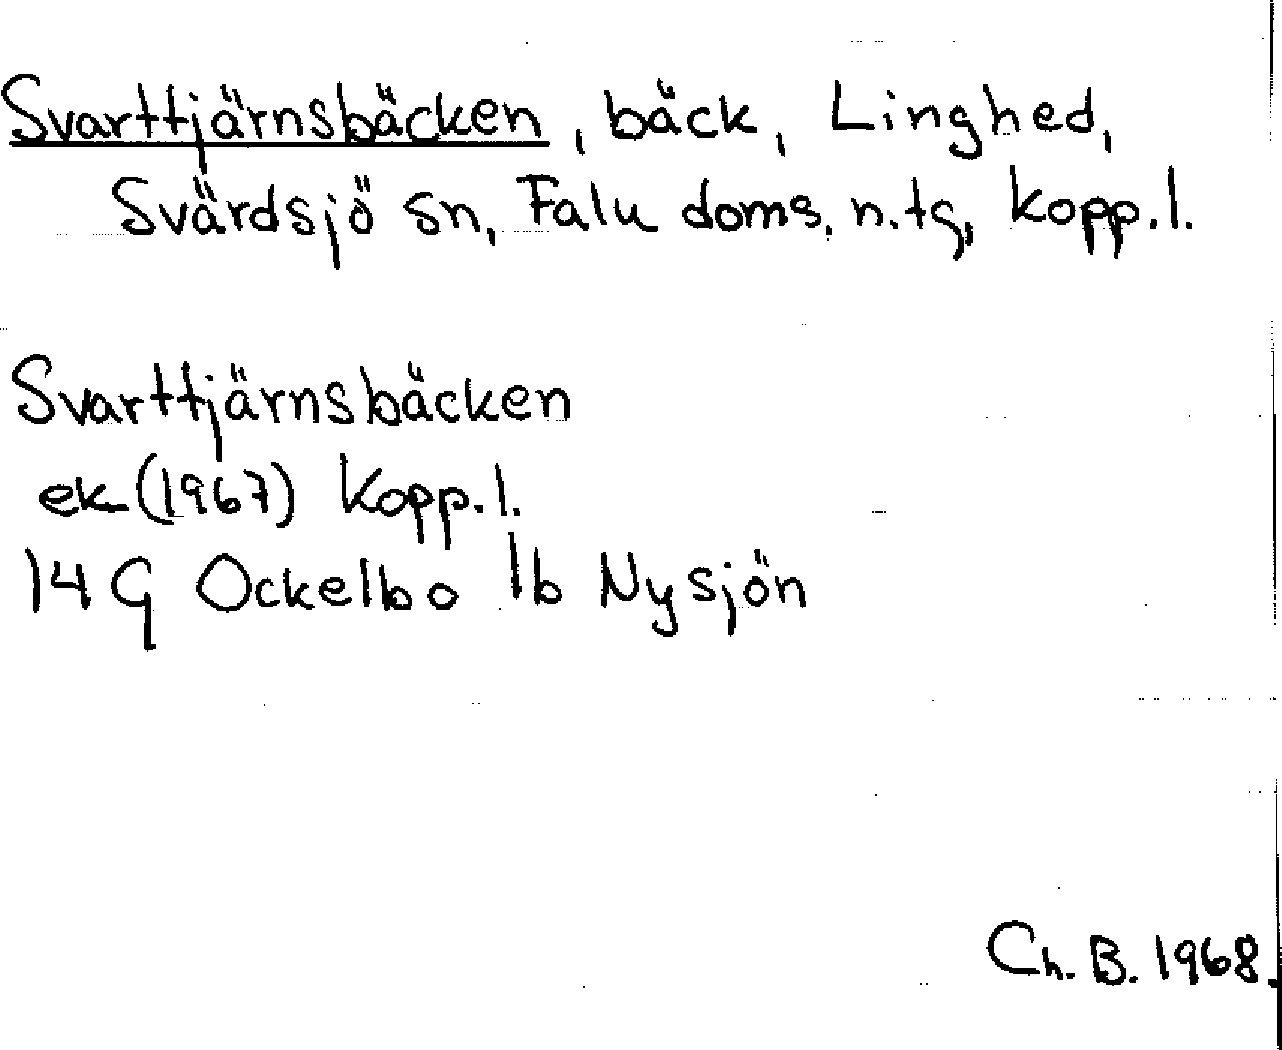 Svarttjärnsbäcken, bäck, Linghed,
Svärdsjö sn, Falu doms. n.tg, Kopp.l.
Svarttjärnsbäcken
ek (1967) Kopp.l.
14 G Ockelbo 1b Nysjön
Ch. B. 1968.